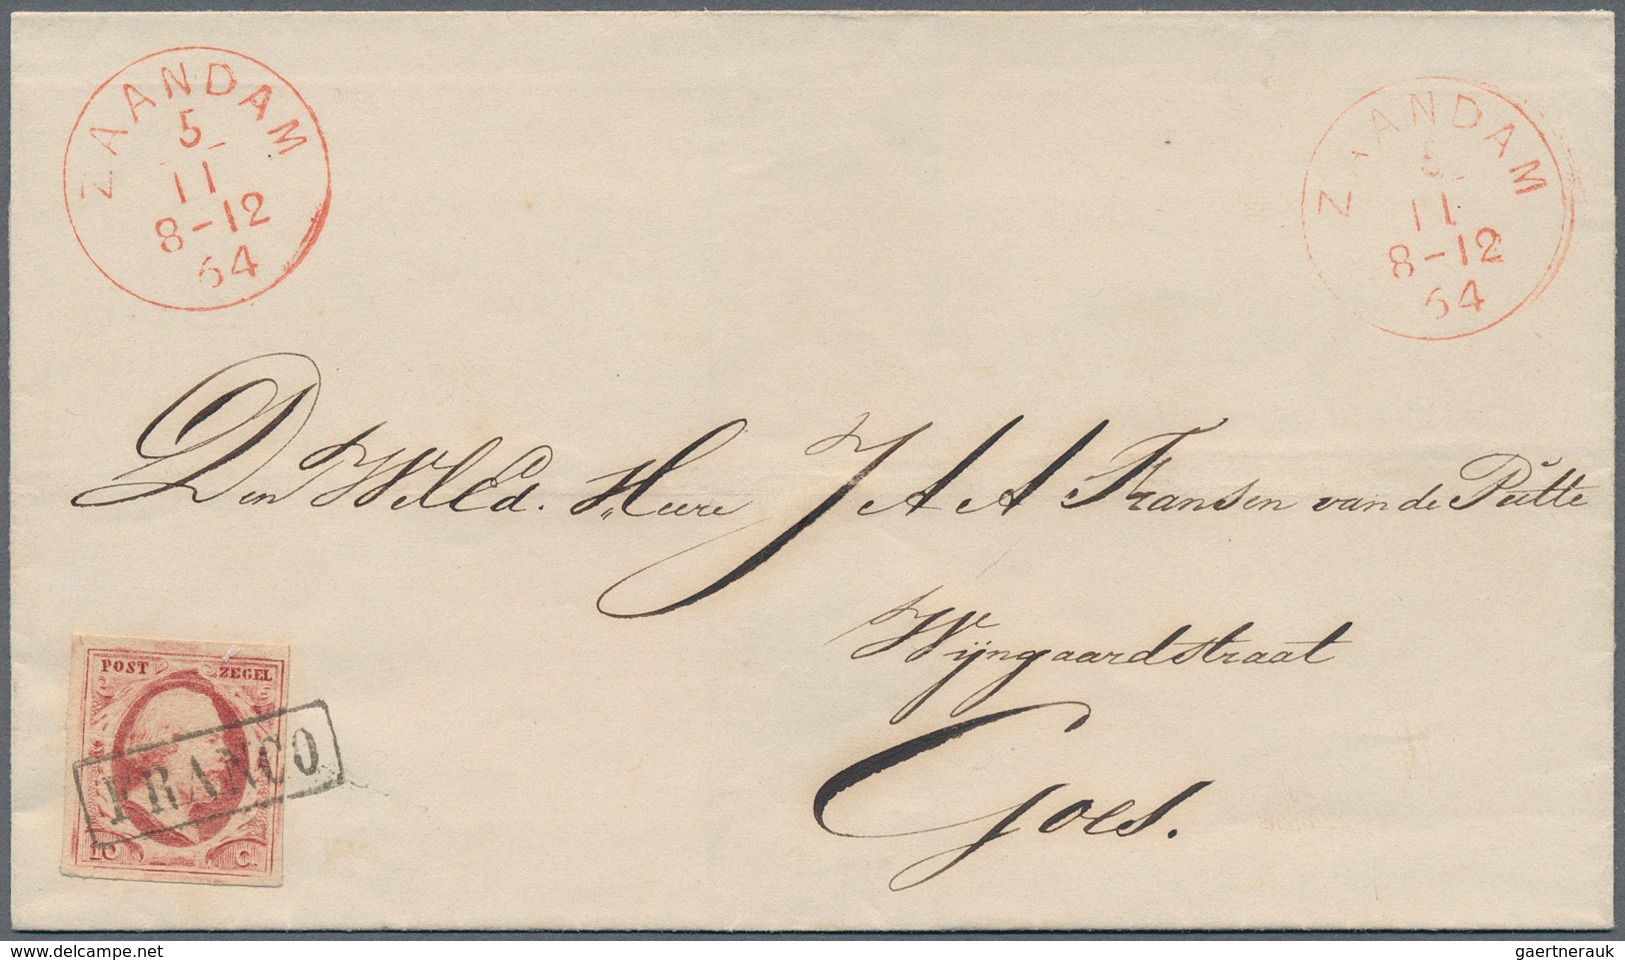 ZAANDAM
5
11
8-12
64
ZAANDAM
5
11
8-12
64
Den WelEd. Heere J A A Fransen van de Pŭtte
Wijngaardstraat
Goes.
POST ZEGEL
FRANCO
10 C.
www.delcampe.net
gaertnerauk